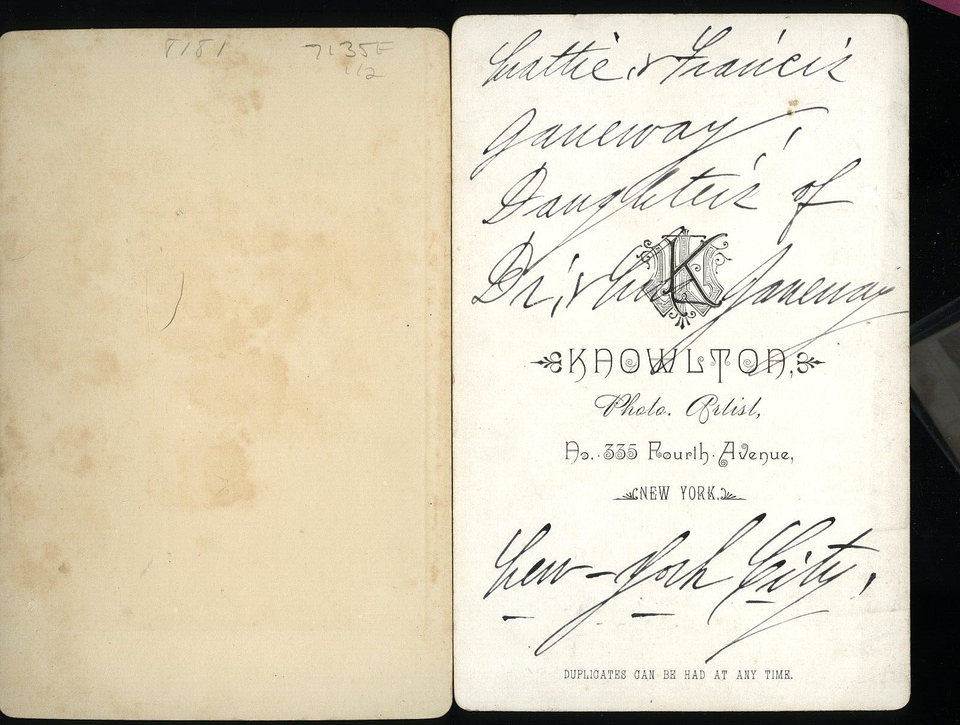 8181 7135E
1/2
& Francis
Janeway,
Daughters of
Dr. & Janeway
K
KNOWLTON,
Photo. Artist,
No. 335 Fourth Avenue,
NEW YORK.
New-York City,
DUPLICATES CAN BE HAD AT ANY TIME.